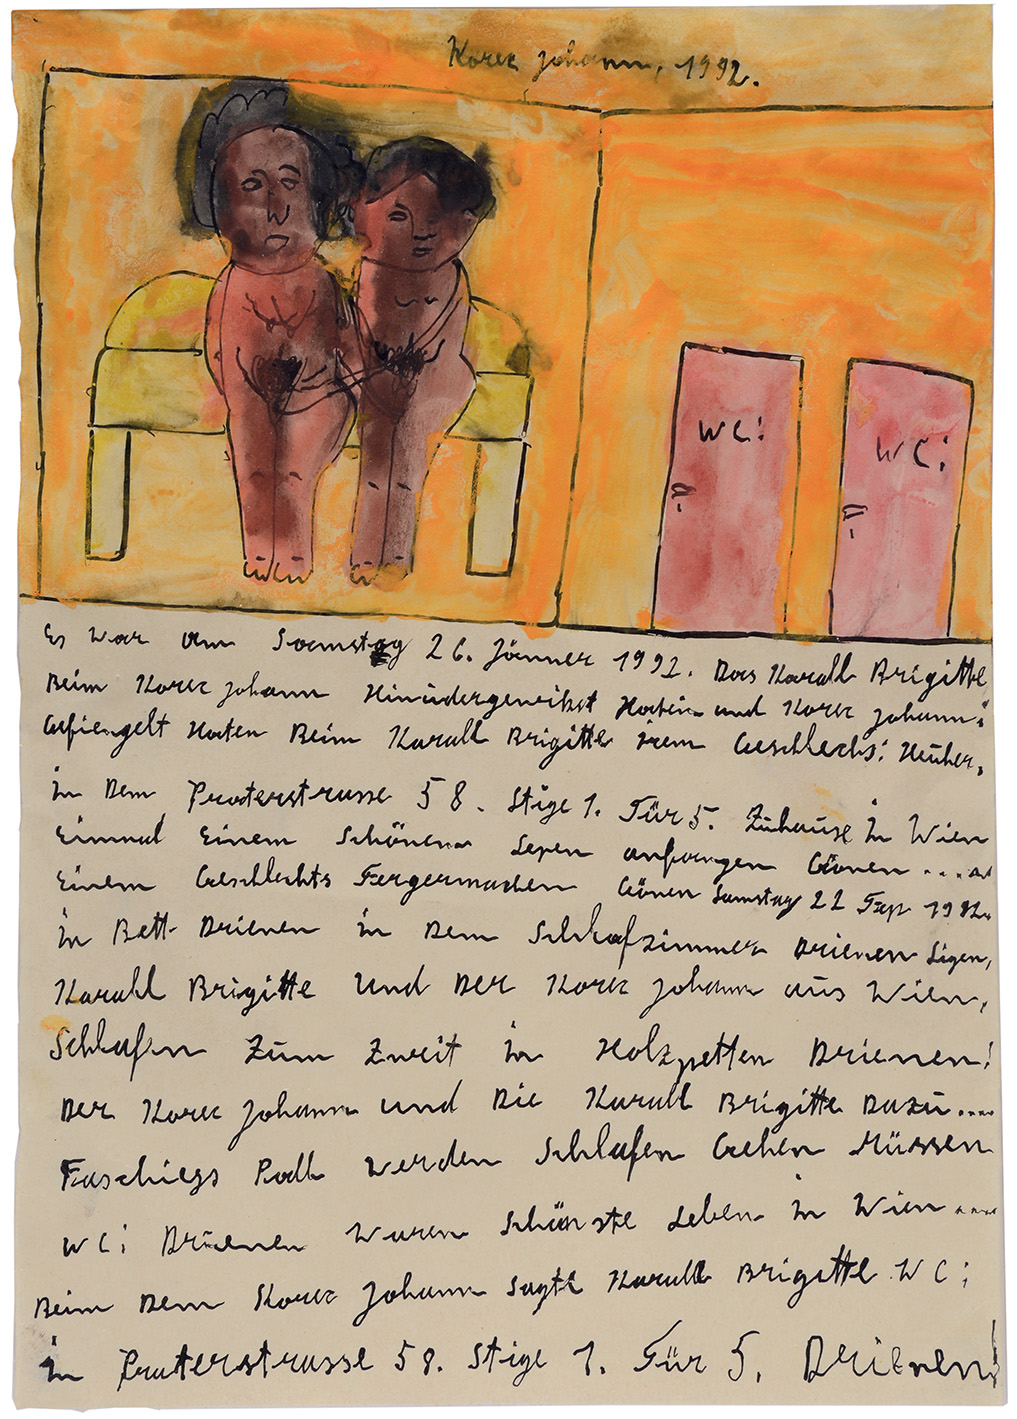 Korec Johann, 1992.
WC!
WC!
Es War am Samstag 26. Jänner 1992. Das Karall Brigitte
Beim Korec Johann und Korec Johann!
Beim Karall Brigitte irem
in Dem Praterstrasse 58. Stige 1. Tür 5. Zuhause in Wien
Einmal Einem Schönen Lepen anfangen Gönen....
Einem Geschlechts Fergermachen Gönen Samstag 22 Fep 1992.
in Bett Drienen in Dem Schlafzimmer Drienen Ligen,
Karall Brigitte und Der Korec Johann aus Wien,
Schlafen Zum Zweit in Holzpetten Drienen!
Der Korec Johann und Die Karall Brigitte Dazu....
Faschigs Pall Werden Schlafen Gehen Müssen
WC! Drienen Waren Schönste Leben in Wien....
Beim Dem Korec Johann Sagte Karall Brigitte WC!
in Praterstrasse 58. Stige 1. Tür 5. Drienen!